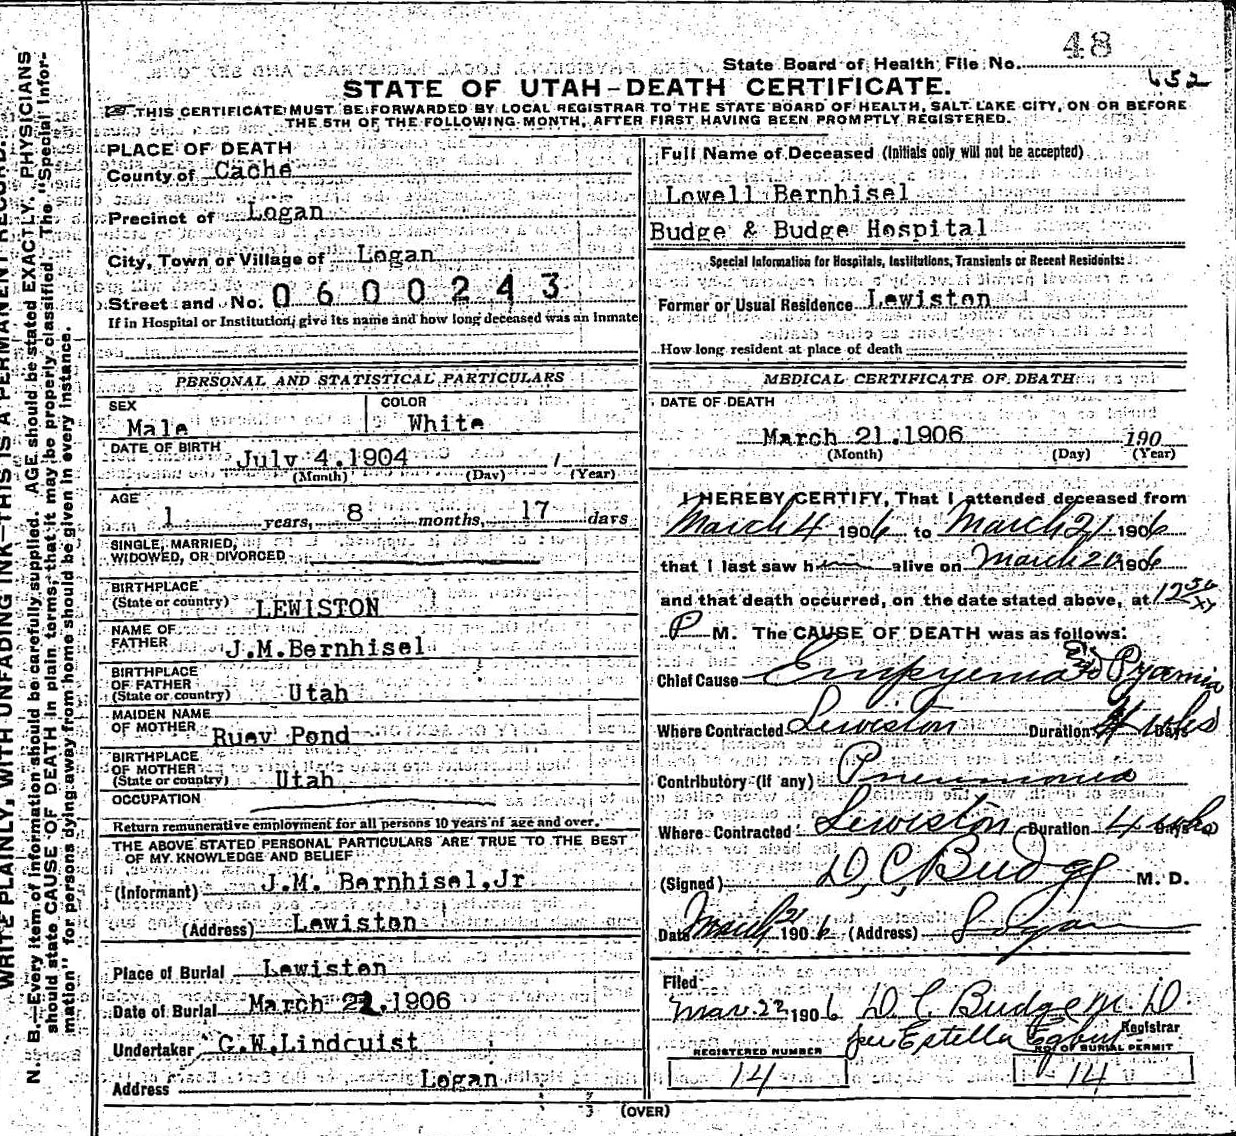 48
State Board of Health File No.
652
STATE OF UTAH-DEATH CERTIFICATE.
THIS CERTIFICATE MUST BE FORWARDED BY LOCAL REGISTRAR TO THE STATE BOARD OF HEALTH, SALT LAKE CITY, ON OR BEFORE
THE 5TH OF THE FOLLOWING MONTH, AFTER FIRST HAVING BEEN PROMPTLY REGISTERED.
PLACE OF DEATH
County of Cache
Precinct of Logan
City, Town or Village of Logan
Street and No. 0600243
If in Hospital or Institution, give its name and how long deceased was an inmate
PERSONAL AND STATISTICAL PARTICULARS
SEX
Male
COLOR
White
DATE OF BIRTH
July 4.1904
(Month) (Day) (Year)
AGE
1 years, 8 months, 17 days
SINGLE, MARRIED,
WIDOWED, OR DIVORCED
BIRTHPLACE
(State or country) LEWISTON
NAME OF
FATHER J.M.Bernhisel
BIRTHPLACE
OF FATHER
(State or country) Utah
MAIDEN NAME
OF MOTHER Ruey Pond
BIRTHPLACE
OF MOTHER
(State or country) Utah
OCCUPATION
Return remunerative employment for all persons 10 years of age and over.
THE ABOVE STATED PERSONAL PARTICULARS ARE TRUE TO THE BEST
OF MY KNOWLEDGE AND BELIEF
(Informant) J.M. Bernhisel,Jr
(Address) Lewiston
Place of Burial Lewiston
Date of Burial March 22.1906
Undertaker G.W.Lindquist
Address Logan
Full Name of Deceased (Initials only will not be accepted)
Lowell Bernhisel
Budge & Budge Hospital
Special Information for Hospitals, Institutions, Transients or Recent Residents:
Former or Usual Residence Lewiston
How long resident at place of death
MEDICAL CERTIFICATE OF DEATH
DATE OF DEATH
March 21.1906 190
(Month) (Day) (Year)
I HEREBY CERTIFY, That I attended deceased from
March 4 1906 to March 21 1906
that I last saw h alive on March 21 1906
and that death occurred, on the date stated above, at 12
P M. The CAUSE OF DEATH was as follows:
Chief Cause Empyema and Pyæmia
Where Contracted Lewiston Duration 4 wks Days
Contributory (if any) Pneumonia
Where Contracted Lewiston Duration 4 wks Days
(Signed) D.C. Budge M. D.
Date March 21 1906 (Address) Logan
Filed
Mar. 22 1906 D C Budge M.D.
per Estella Egbert Registrar
REGISTERED NUMBER
14
NO. OF BURIAL PERMIT
14
(OVER)
WRITE PLAINLY, WITH UNFADING INK—THIS IS A PERMANENT RECORD.
N. B.—Every item of information should be carefully supplied. AGE should be stated EXACTLY. PHYSICIANS
should state CAUSE OF DEATH in plain terms, that it may be properly classified. The "Special Infor-
mation" for persons dying away from home should be given in every instance.